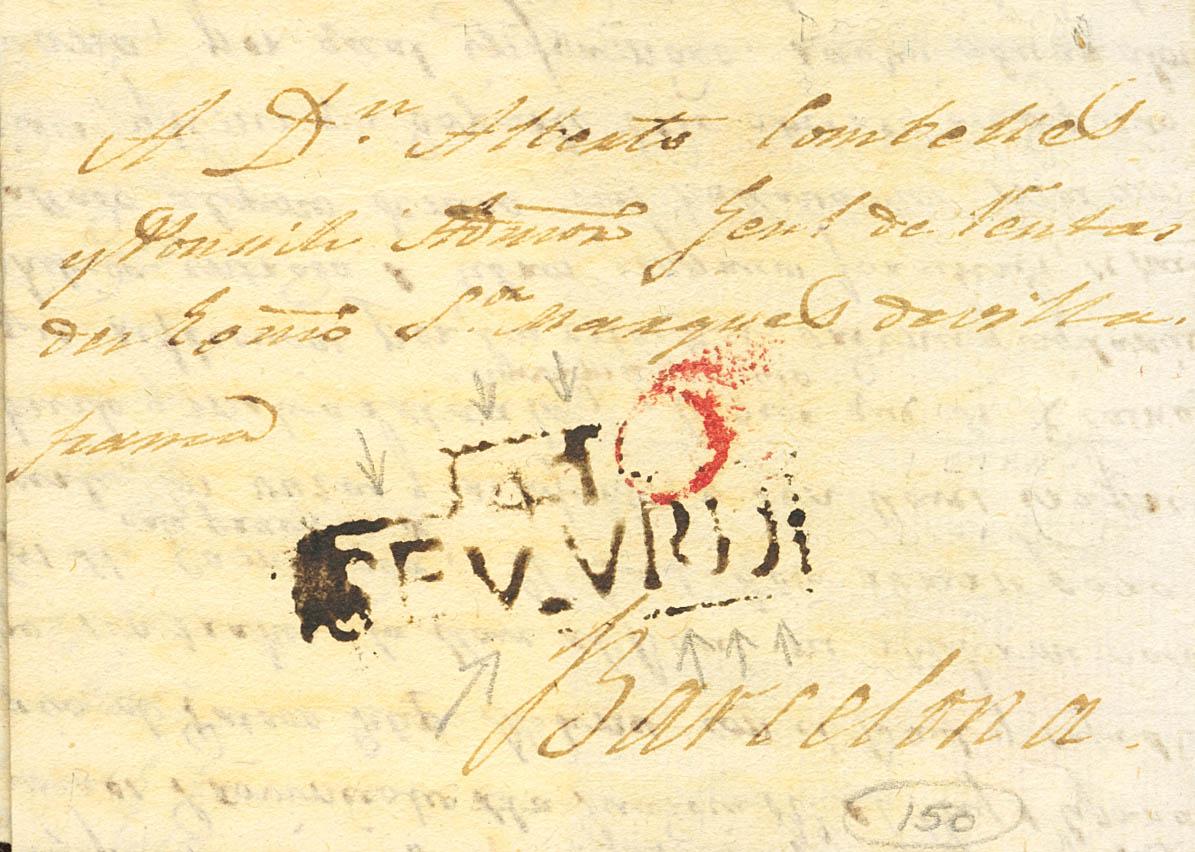 A Dⁿ. Alberto Combelles
y Admõr Genˡ de Rentas
del Exm̃o Sᵒʳ Marques de villa-
franca
SEU.VRJ
Barcelona.
150